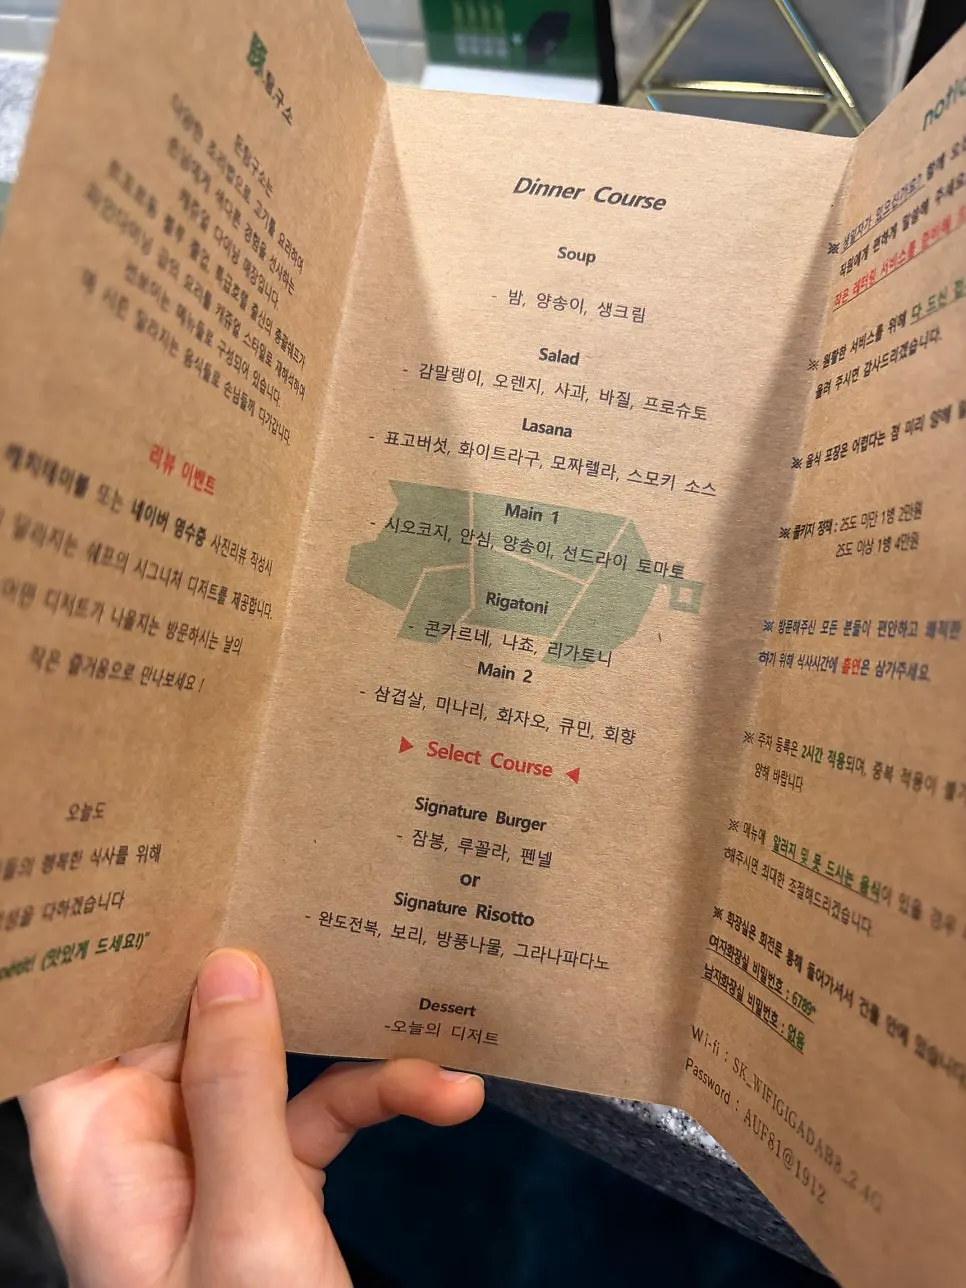 豚요구소
돈탐구소는
다양한 조리법으로 고기를 요리하여
손님에게 색다른 경험을 선사하는
캐쥬얼 다이닝 매장입니다.
르꼬르동 블루 졸업, 특급호텔 출신의 총괄쉐프가
파인다이닝 급의 요리를 캐쥬얼 스타일로 재해석하여
선보이는 메뉴들로 구성되어 있습니다.
매 시즌 달라지는 음식들로 손님들께 다가갑니다.
리뷰 이벤트
캐치테이블 또는 네이버 영수증 사진리뷰 작성시
달라지는 쉐프의 시그니쳐 디저트를 제공합니다.
어떤 디저트가 나올지는 방문하시는 날의
작은 즐거움으로 만나보세요 !
오늘도
행복한 식사를 위해
다하겠습니다
(맛있게 드세요!)"
Dinner Course
Soup
- 밤, 양송이, 생크림
Salad
- 감말랭이, 오렌지, 사과, 바질, 프로슈토
Lasana
- 표고버섯, 화이트라구, 모짜렐라, 스모키 소스
Main 1
- 시오코지, 안심, 양송이, 선드라이 토마토
Rigatoni
- 콘카르네, 나쵸, 리가토니
Main 2
- 삼겹살, 미나리, 화자오, 큐민, 회향
▶ Select Course ◀
Signature Burger
- 잠봉, 루꼴라, 펜넬
or
Signature Risotto
- 완도전복, 보리, 방풍나물, 그라나파다노
Dessert
-오늘의 디저트
notic
※ 생일자가 있으신가요? 함께
직원에게 편하게 말씀해 주세요
작은 레터링 서비스를 준비해
※ 원활한 서비스를 위해 다 드신
올려 주시면 감사드리겠습니다.
※ 음식 포장은 어렵다는 점 미리 양해
※ 콜키지 정책 : 25도 미만 1병 2만원
25도 이상 1병 4만원
※ 방문해주신 모든 분들이 편안하고 쾌적한
하기 위해 식사시간에 흡연은 삼가주세요.
※ 주차 등록은 2시간 적용되며, 중복 적용이
양해 바랍니다
※ 메뉴에 알러지 및 못 드시는 음식이 있을 경우
해주시면 최대한 조절해드리겠습니다.
※ 화장실은 회전문 통해 들어가셔서 건물 안에 있습니다
여자화장실 비밀번호 : 6789*
남자화장실 비밀번호 : 없음
Wi-fi : SK_WIFIGIGADAB8_2.4G
Password : AUF81@1912